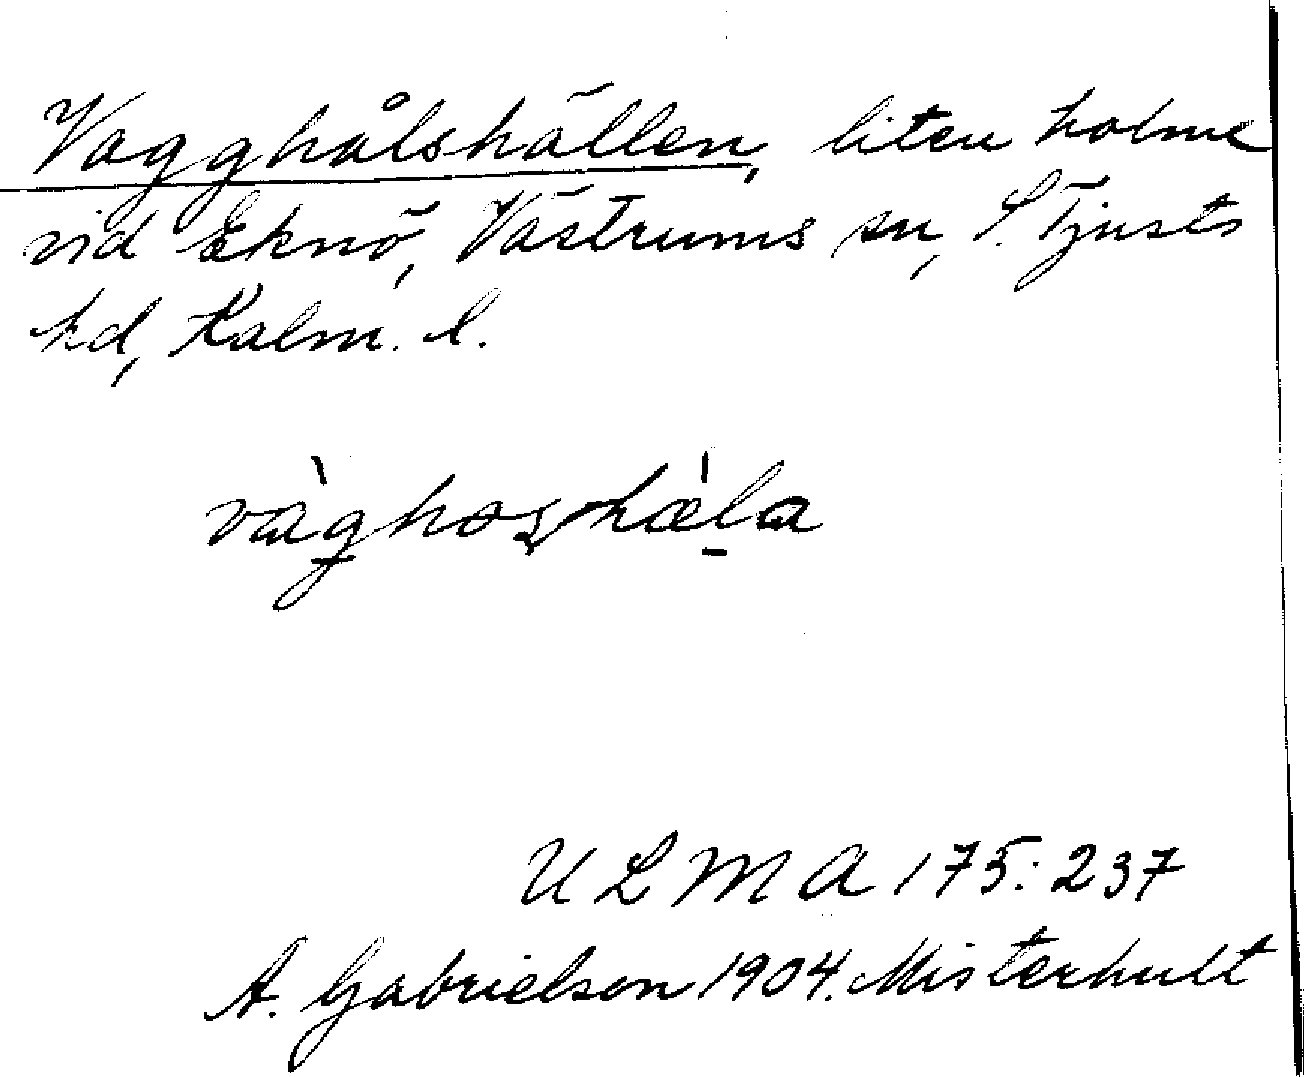 Vagghålshällen, liten holme
vid Eknö, Västrums sn, S. Tjusts
hd, Kalm. l.
ULMA 175:237
A. Gabrielson 1904. Misterhult